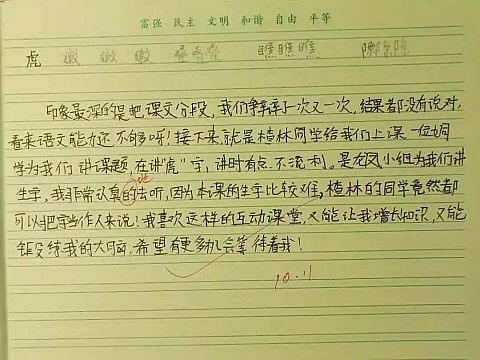 富强 民主 文明 和谐 自由 平等
虎 嫩 嫩 嫩 叠叠叠 瞧瞧瞧
印象最深的是把课文分段，我们争辩了一次又一次，结果都没有说对，
看来语文能力还不够呀！接下来，就是楂林同学给我们上课，一位女同
学为我们讲课题，在讲"虎"字，讲时有点不流利。是龙凤小组为我们讲
生字，我非常认真的去听，因为本课的生字比较难，楂林的同学竟然都
地
可以把字当作人来说！我喜欢这样的互动课堂，又能让我增长知识，又能
锻练我的大脑，希望有更多机会等待着我！
10.11